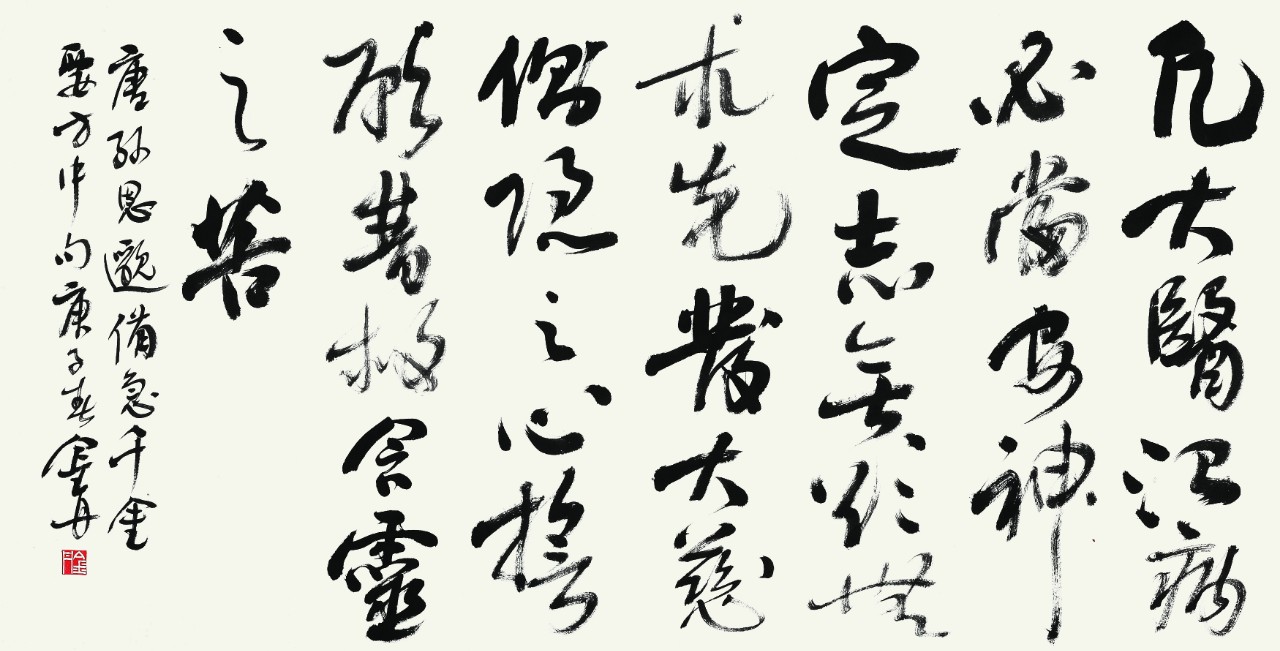 凡大醫治病
必當安神
定志無欲無
求先發大慈
惻隱之心誓
願普救含靈
之苦
唐孫思邈備急千金
要方中句庚子春金丹